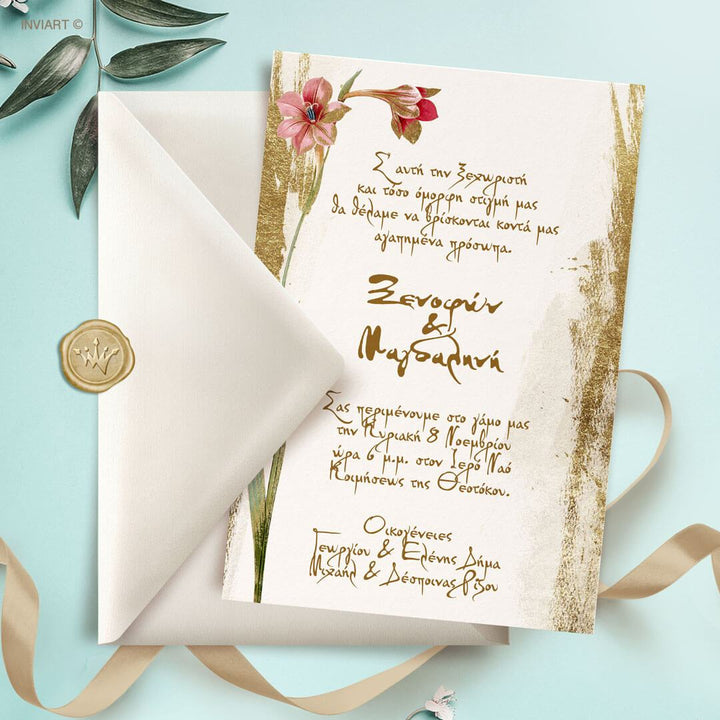 INVIART ©
Σ αυτή την ξεχωριστή
και τόσο όμορφη στιγμή μας
θα θέλαμε να βρίσκονται κοντά μας
αγαπημένα πρόσωπα.
Ξενοφών
&
Μαγδαληνή
Σας περιμένουμε στο γάμο μας
την Κυριακή 8 Νοεμβρίου
ώρα 6 μ.μ. στον Ιερό Ναό
Κοιμήσεως της Θεοτόκου.
Οικογένειες
Γεωργίου & Ελένης Δήμα
Μιχαήλ & Δέσποινας Ρίζου